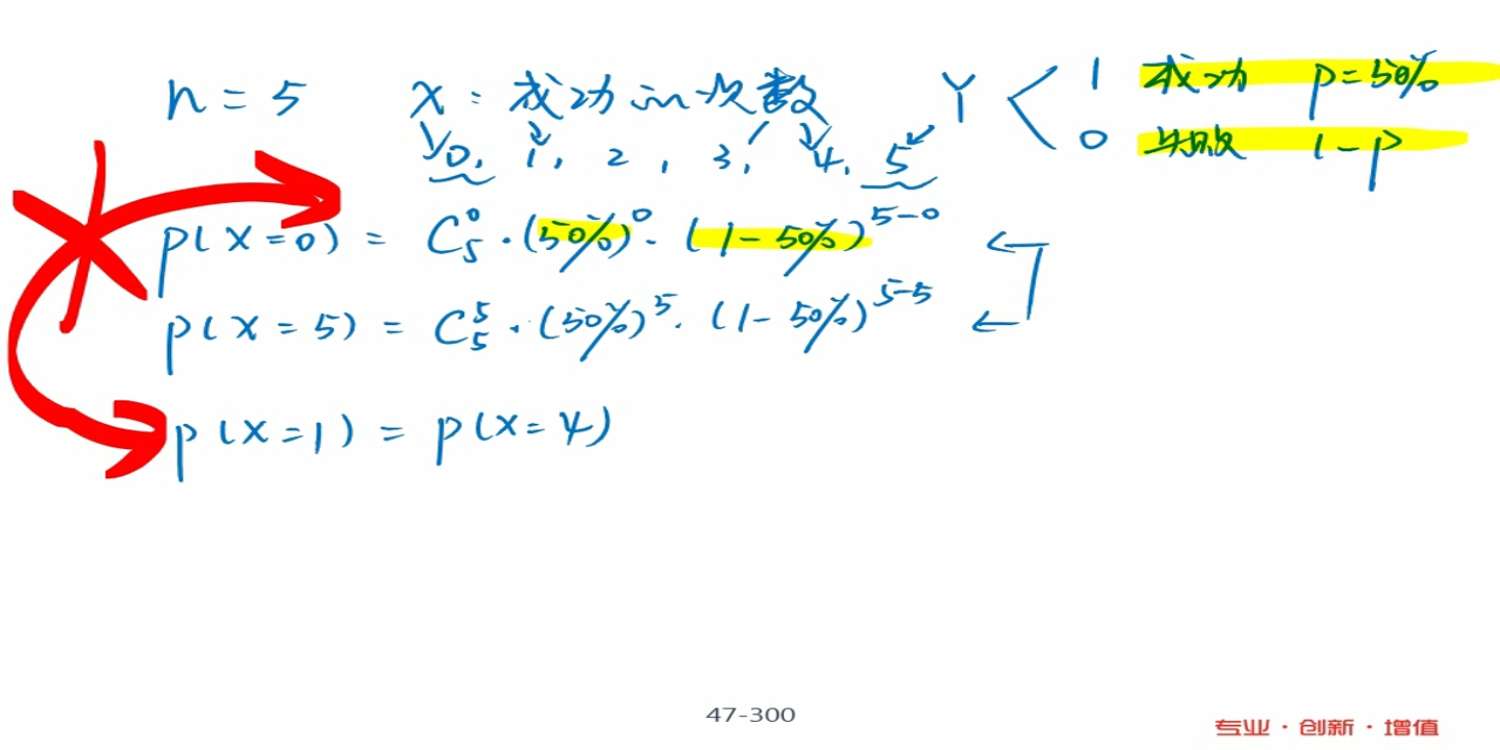 n = 5 X: 成功的次数 Y 1 成功 p=50%
0, 1, 2, 3, 4, 5 0 失败 1-p
p(X=0) = C₅⁰·(50%)⁰·(1-50%)⁵⁻⁰
p(X=5) = C₅⁵·(50%)⁵·(1-50%)⁵⁻⁵
p(X=1) = p(X=4)
47-300
专业·创新·增值